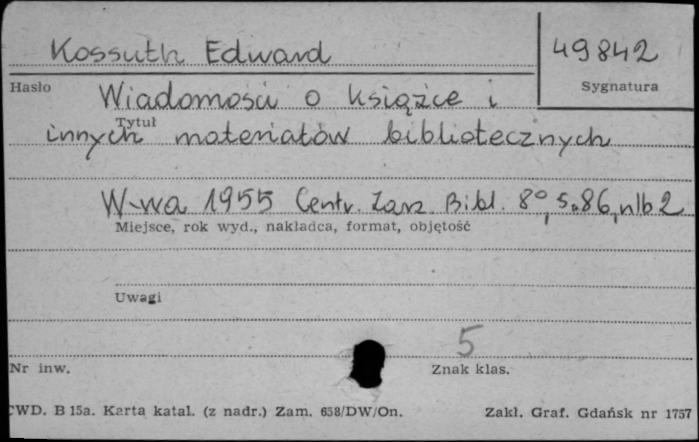 Kossuth Edward
49842
Hasło
Sygnatura
Wiadomości o książce i
Tytuł
innych materiałów bibliotecznych
W-wa 1955 Centr. Zarz. Bibl. 8°, s. 86, nlb 2
Miejsce, rok wyd., nakładca, format, objętość
Uwagi
5
Nr inw.
Znak klas.
CWD. B 15a. Karta katal. (z nadr.) Zam. 658/DW/On.
Zakł. Graf. Gdańsk nr 1757